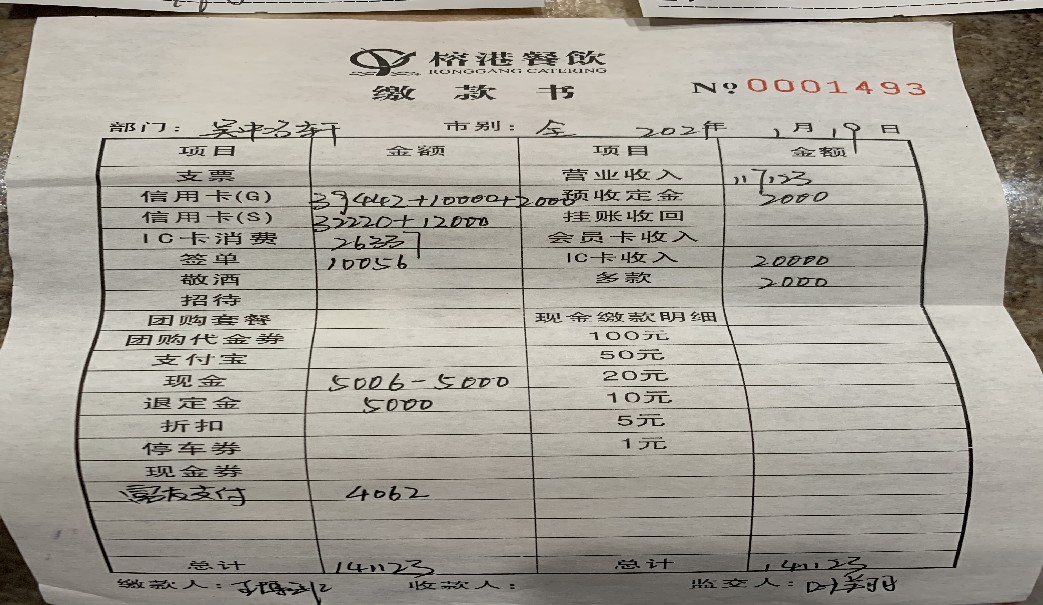 榕港餐饮
RONGGANG CATERING
缴款书 Nº 0001493
部门: 吴中名轩 市别: 全 2021年 1月 19日
项目 金额 项目 金额
支票 营业收入 117123
信用卡(G) 39442+10000+2000 预收定金 2000
信用卡(S) 32220+12000 挂账收回
IC卡消费 26337 会员卡收入
签单 10056 IC卡收入 20000
敬酒 多款 2000
招待
团购套餐 现金缴款明细
团购代金券 100元
支付宝 50元
现金 5006-5000 20元
退定金 5000 10元
折扣 5元
停车券 1元
现金券
富友支付 4062
总计 141123 总计 141123
缴款人: 收款人: 监交人: